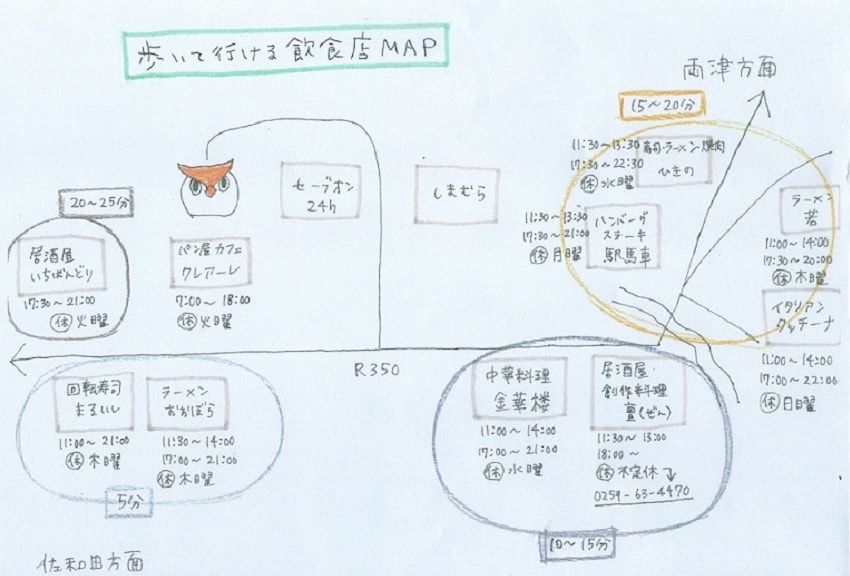 歩いて行ける飲食店MAP
両津方面
15~20分
11:30~13:30
17:30~22:30
休 水曜
寿司・ラーメン・焼肉
ひきの
11:30~13:30
17:30~21:00
休 月曜
ハンバーグ
ステーキ
駅馬車
ラーメン
若
11:00~14:00
17:30~20:00
休 木曜
イタリアン
クッチーナ
11:00~14:00
17:00~22:00
休 日曜
セーブオン
24h
しまむら
20~25分
居酒屋
いちばんどり
17:30~21:00
休 火曜
パン屋カフェ
クレアーレ
7:00~18:00
休 火曜
R350
回転寿司
まるいし
11:00~21:00
休 木曜
ラーメン
おかぼら
11:30~14:00
17:00~21:00
休 木曜
5分
中華料理
金華楼
11:00~14:00
17:00~21:00
休 水曜
居酒屋・
創作料理
(ぜん)
11:30~13:00
18:00~
休 不定休
0259-63-4470
10~15分
佐和田方面